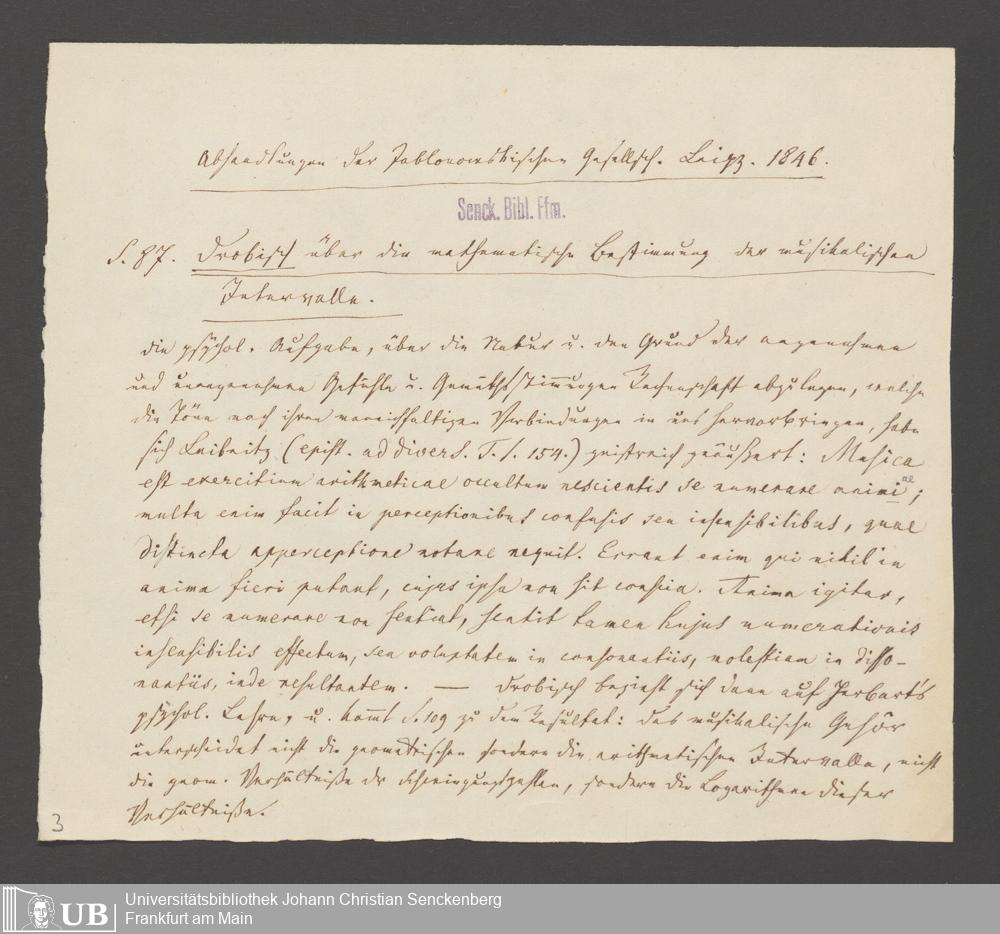 Abhandlungen der Jablonowskischen Gesellsch. Leipz. 1846.
Senck. Bibl. Ffm.
S. 87. Drobisch über die mathematische Bestimmung der musikalischen
Intervalle.
die psychol. Aufgabe, über die Natur u. den Grund der angenehmen
und unangenehmen Gefühle u. Gemüthsstimmungen Rechenschaft abzulegen, welche
die Töne nach ihren mannichfaltigen Verbindungen in uns hervorbringen, habe
sich Leibnitz (epist. ad divers. T. I. 154.) geistreich geäußert: Musica
est exercitium arithmeticae occultum nescientis se numerare animi ae;
multa enim facit in perceptionibus confusis seu insensibilibus, quae
distincta apperceptione notare nequit. Errant enim qui nihil in
anima fieri putant, cujus ipsa non sit conscia. Anima igitur,
etsi se numerare non sentiat, sentit tamen hujus numerationis
insensibilis effectum, seu voluptatem in consonantiis, molestiam in disso-
nantiis, inde resultantem. — Drobisch bezieht sich dann auf Herbart's
psychol. Lehre, u. kommt S. 109 zu dem Resultat: das musikalische Gehör
unterscheidet nicht die geometrischen sondern die arithmetischen Intervalle, nicht
die geom. Verhältniße der Schwingungszahlen, sondern die Logarithmen dieser
Verhältniße.
3
UB
Universitätsbibliothek Johann Christian Senckenberg
Frankfurt am Main